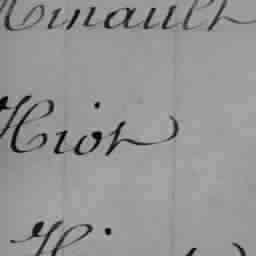 Hinault
Hiot